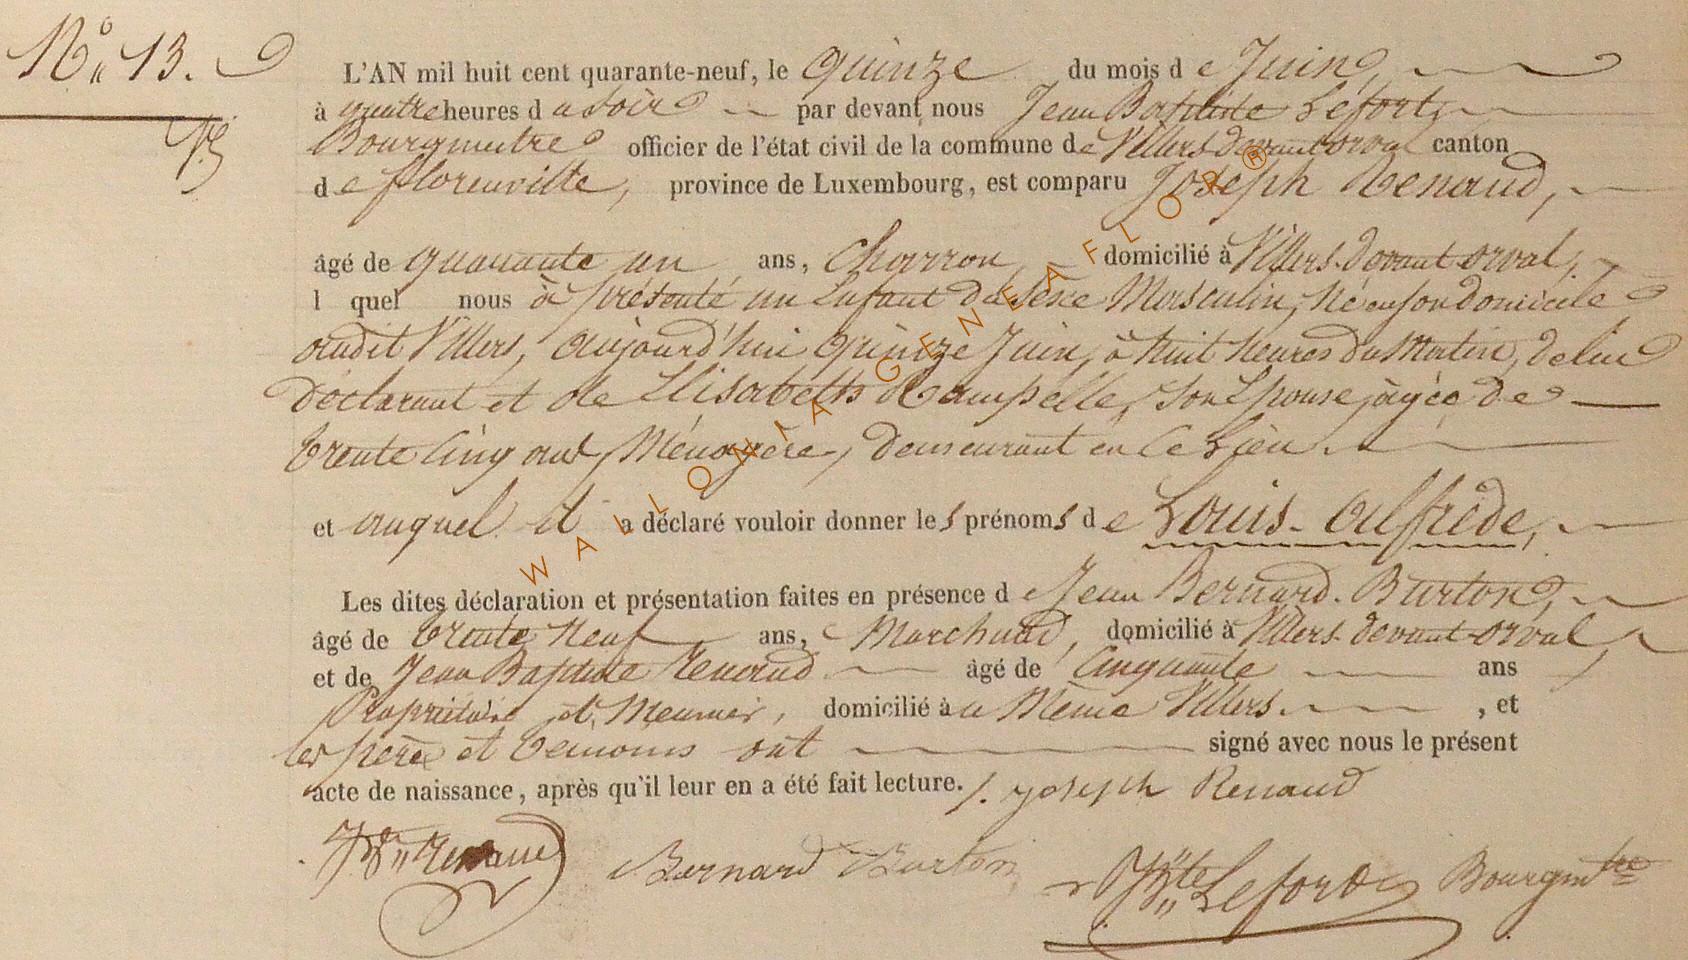 N° 13.
L'AN mil huit cent quarante-neuf, le quinze du mois de Juin,
à quatre heures du soir par devant nous Jean Baptiste Lefort,
Bourgmestre officier de l'état civil de la commune de Villers devant orval canton
de florenville, province de Luxembourg, est comparu Joseph Renaud,
âgé de quarante un ans, Charron, domicilié à Villers-devant-orval,
l quel nous à présenté un Enfant du Sexe Masculin, Né en son domicile
audit Villers, aujourd'hui quinze Juin, à huit heures du Matin, de lui
déclarant et de Elisabeth Rampelle, Son Epouse, âgée de
trente cinq ans, Ménagère, demeurant en ce Lieu.
et auquel il a déclaré vouloir donner les prénoms de Louis-alfrède,
Les dites déclaration et présentation faites en présence de Jean Bernard Burton,
âgé de trente Neuf ans, Marchand, domicilié à Villers-devant-orval,
et de Jean Baptiste Renaud âgé de Cinquante ans
Propriétaire et Meunier, domicilié au Même Villers. , et
les père et témoins ont signé avec nous le présent
acte de naissance, après qu'il leur en a été fait lecture. J. Joseph Renaud
Renaud Bernard Burton JBte Lefort Bourgmtre
WALLONIA GENEAFLOR®